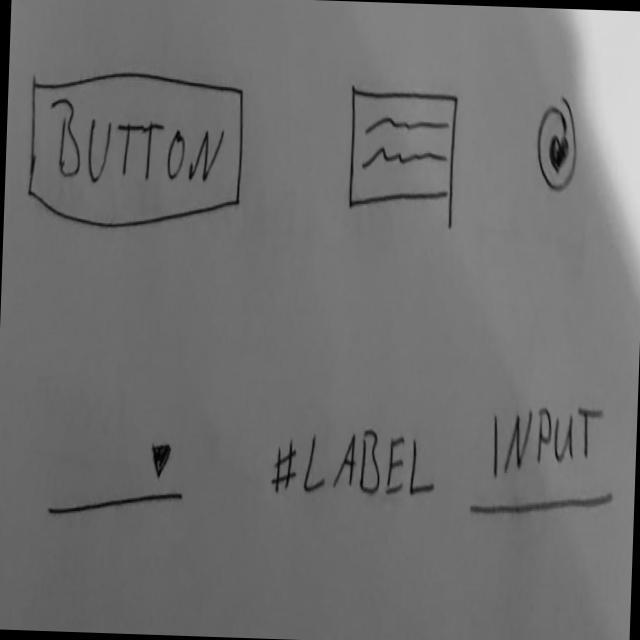 BUTTON
#LABEL
INPUT